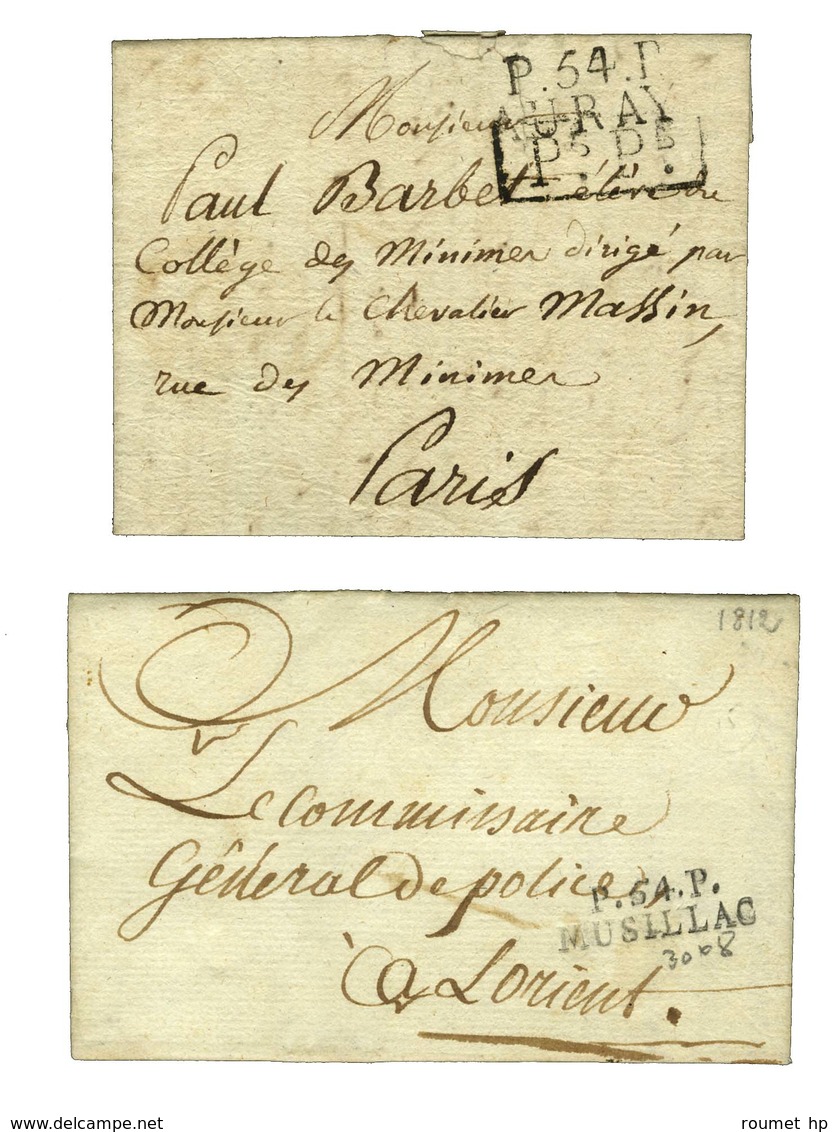 P.54.P
AURAY
Ps.Ps.
Monsieur
Paul Barbet élève du
Collège des Minimes dirigé par
Monsieur le Chevalier Massin,
rue des Minimes
Paris
1812
Monsieur
Le commissaire
Général de police,
P.54.P.
MUSILLAC
3008
à Lorient.
www.delcampe.net
roumet hp